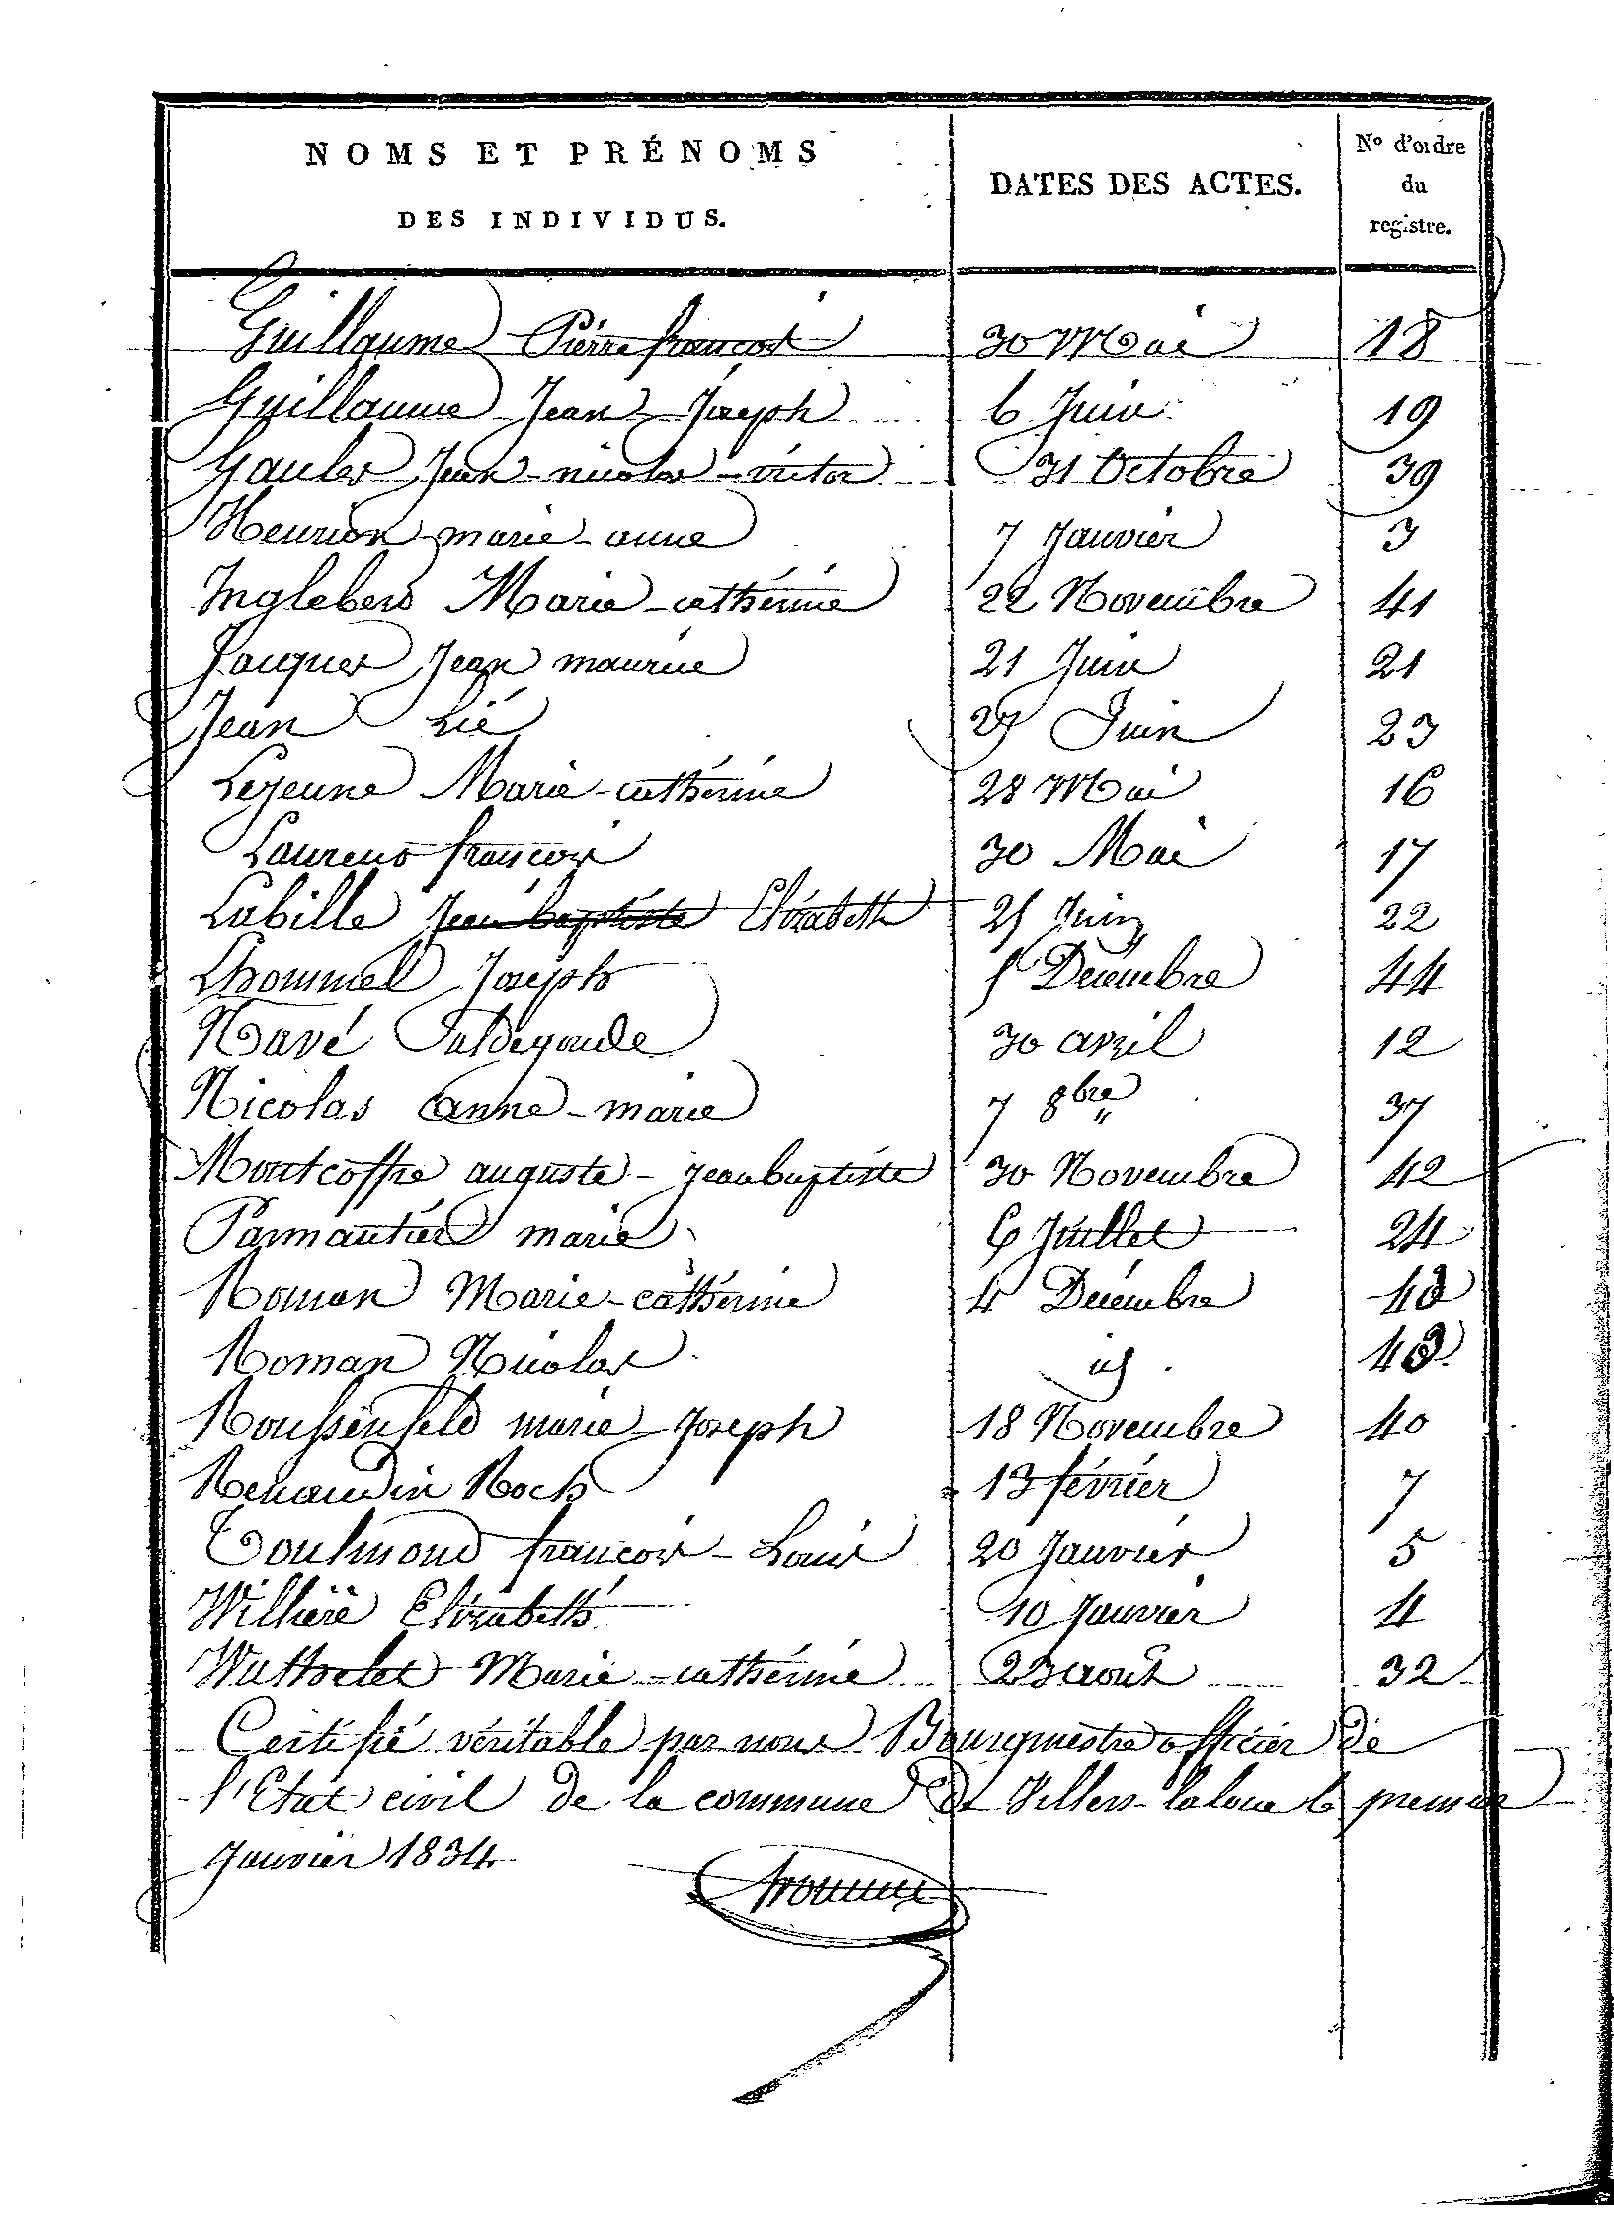 NOMS ET PRÉNOMS
DES INDIVIDUS.
DATES DES ACTES.
No d'ordre
du
registre.
Guillaume Pierre françois 30 Mai 18
Guillaume Jean Joseph 6 Juin 19
Jean-nicolas-victor 31 Octobre 39
Henrion marie-anne 7 Janvier 3
Marie-cathérine 22 Novembre 41
Jacques Jean maurice 21 Juin 21
Jean Lié 27 Juin 23
Lejeune Marie-cathérine 28 Mai 16
Laurent françois 30 Mai 17
Labille Jean baptiste Elizabeth 25 Juin 22
Lhommel Joseph Décembre 44
Navé 30 avril 12
Nicolas anne-marie 7 8bre 37
Montcoffre auguste-jean baptiste 30 Novembre 42
Parmantier marie 6 Juillet 24
Roman Marie-cathérine 4 Décembre
Roman Nicolas 43
marie-Joseph 18 Novembre 40
Renaudin Roch 13 février 7
Toulmond françois-Louis 20 Janvier 5
Elizabeth 10 Janvier 4
Wathelet Marie-cathérine 23 août 32
Certifié véritable par nous Bourguestre officier de
l'Etat civil de la commune de Villers-laloue le premier
Janvier 1834